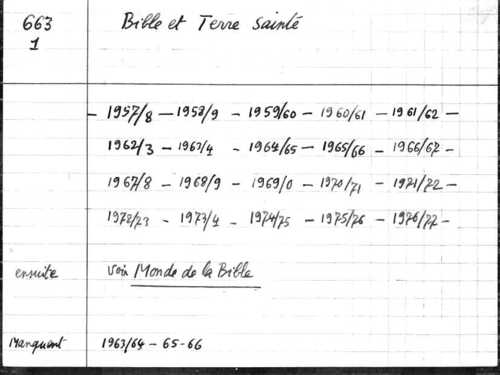 663 Bible et Terre Sainte
1
- 1957/8 - 1958/9 - 1959/60 - 1960/61 - 1961/62 -
1962/3 - 1963/4 - 1964/65 - 1965/66 - 1966/67 -
1967/8 - 1968/9 - 1969/0 - 1970/71 - 1971/72 -
1972/73 - 1973/4 - 1974/75 - 1975/76 - 1976/77 -
ensuite voir Monde de la Bible
Manquent 1963/64 - 65-66